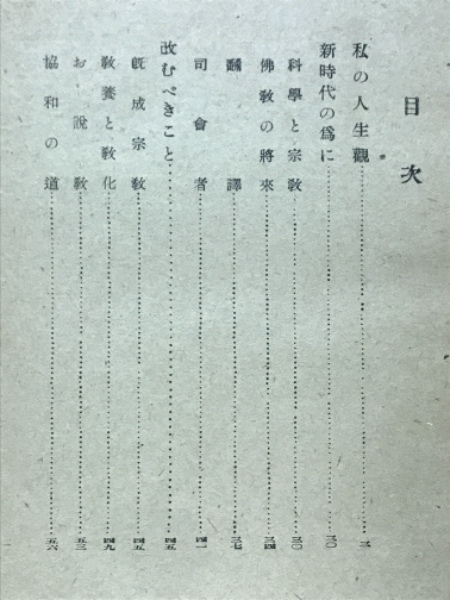 目次
私の人生觀
新時代の爲に
科學と宗敎……三〇
佛敎の將來……三四
飜譯……三七
司會者……四一
改むべきこと……四五
旣成宗敎……四五
敎養と敎化……四九
お說敎……五三
協和の道……五六